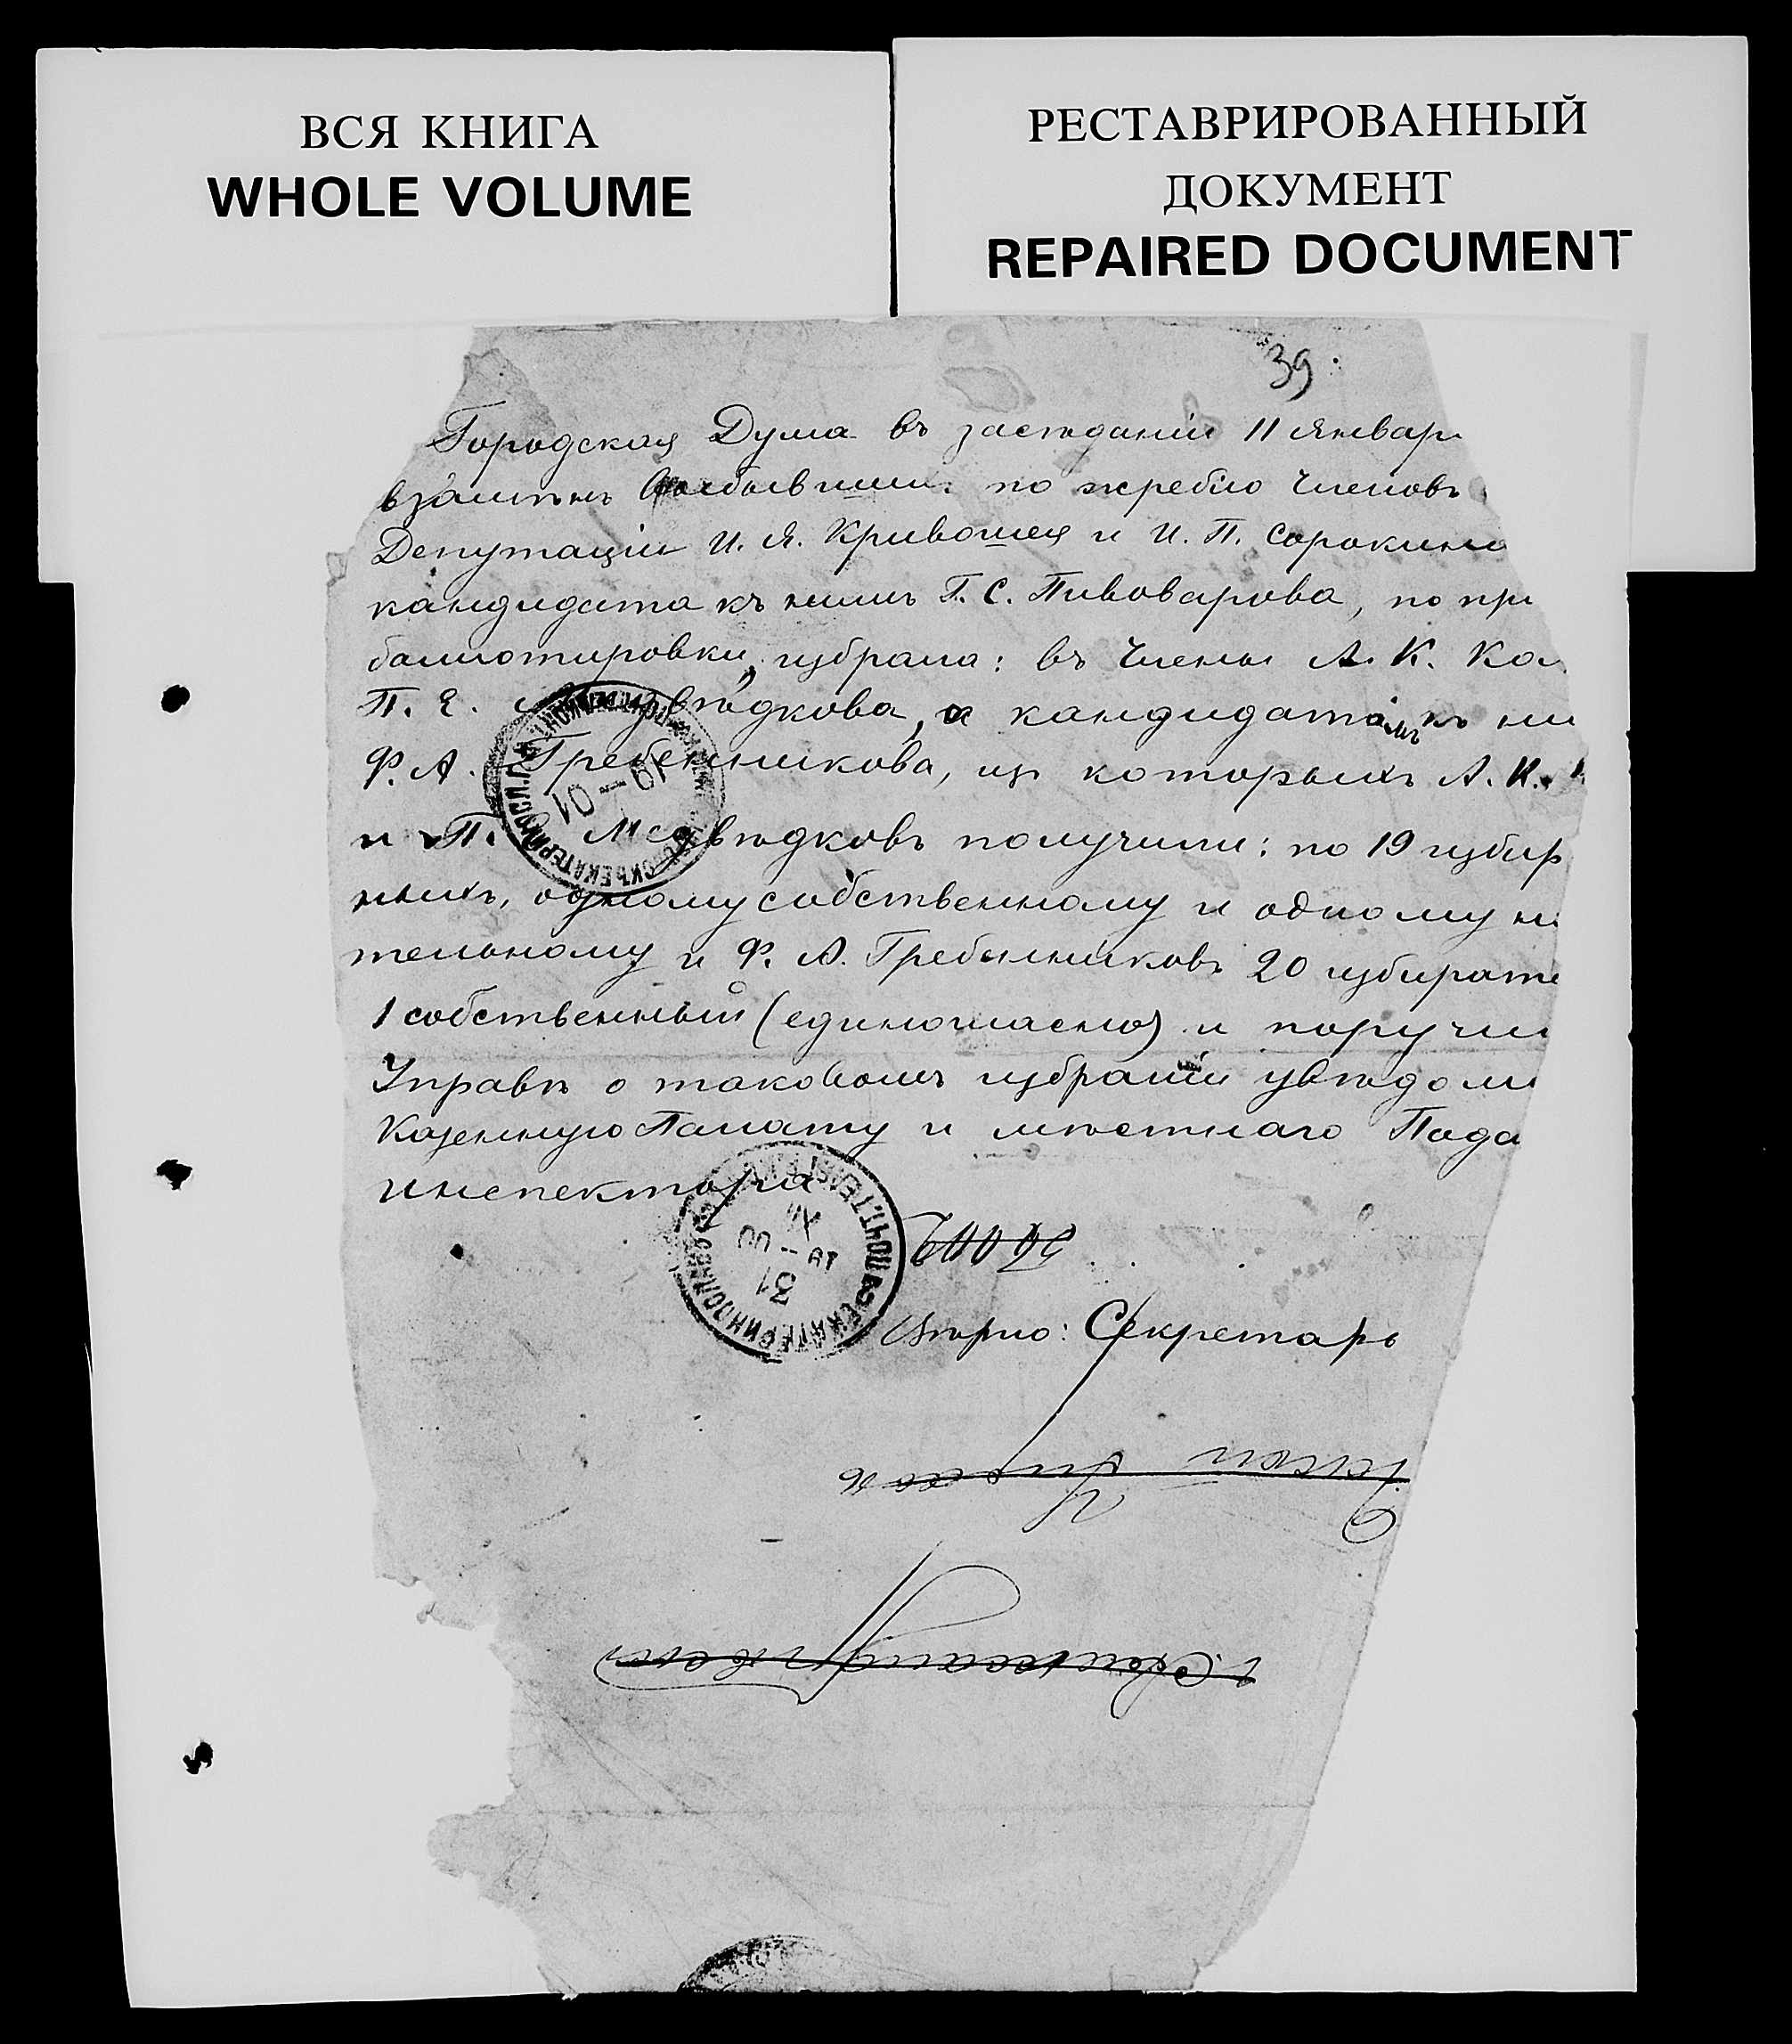 ВСЯ КНИГА
WHOLE VOLUME
РЕСТАВРИРОВАННЫЙ
ДОКУМЕНТ
REPAIRED DOCUMENT
39
Городская Дума въ засѣданіи 11 Январ
взамѣнъ выбывшихъ по жребію Членовъ
Депутаціи И. Я. Кривошея и И. П. Сорокина
кандидата къ нимъ Г. С. Пивоварова, по при
баллотировки, избрала: въ Члены А. К. Ко
П. Е. Медвѣдкова, а кандидатомъ къ ни
Ф. А. Гребенникова, изъ которыхъ А. К.
и П. Медвѣдковъ получили: по 19 избир
ныхъ, одному собственному и одному не
тельному и Ф. А. Гребенниковъ 20 избирате
1 собственный (единогласно) и поручи
Управѣ о таковомъ избраніи увѣдоми
Казенную Палату и мѣстнаго Пода
инспектора
31
Вѣрно: Секретарь